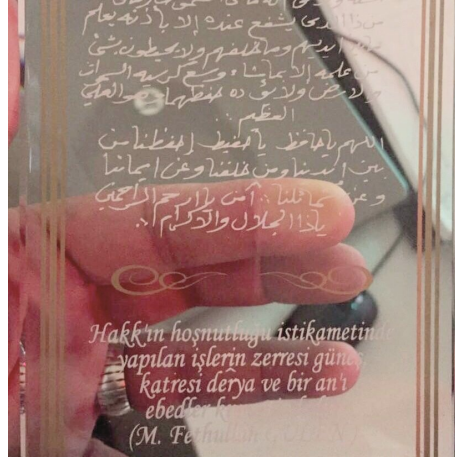 من ذا الذي يشفع عنده إلا باذنه يعلم
ايديهم وما خلفهم ولا يحيطون بشئ
من علمه الا بما شاء وسع كرسيه السموات
والارض ولا يؤده حفظهما وهو العلي
العظيم ..
اللهم يا حافظ يا حفيظ إحفظنا من
بين ايدينا ومن خلفنا وعن ايماننا
وعن شمائلنا .. آمين يا ارحم الراحمين
ياذا الجلال والاكرام ..
Hakk'ın hoşnutluğu istikametinde
yapılan işlerin zerresi güneş,
katresi dêrya ve bir an'ı
ebedler
(M. Fethullah GÜLEN)